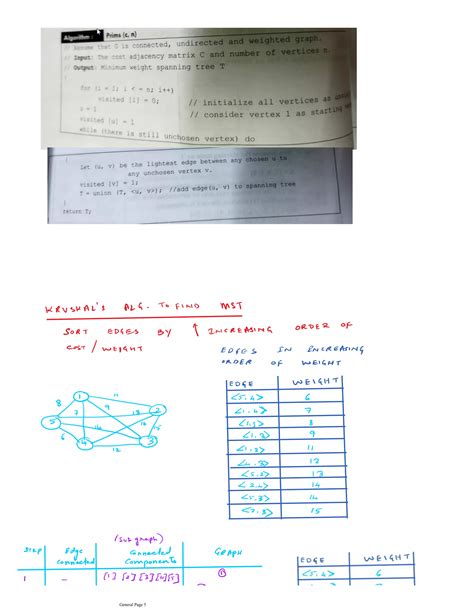 Algorithm : Prims (c, n)
// Assume that S is connected, undirected and weighted graph.
// Input: The cost adjacency matrix C and number of vertices n.
// Output: Minimum weight spanning tree T
for (i = 1; i <= n; i++)
visited [i] = 0; // initialize all vertices as
u = 1 // consider vertex 1 as starting
visited [u] = 1
while (there is still unchosen vertex) do
{
Let (u, v) be the lightest edge between any chosen u to
any unchosen vertex v.
visited [v] = 1;
T = union (T, <u, v>); //add edge(u, v) to spanning tree
}
return T;
KRUSKAL'S ALG. TO FIND MST
SORT EDGES BY ↑ INCREASING ORDER OF
COST / WEIGHT
EDGES IN INCREASING
ORDER OF WEIGHT
EDGE WEIGHT
<5,4> 6
<1,4> 7
8
9
11
12
13
<2,4> 14
<5,3> 14
15
1 2 3 4 5
8 11 7 9 13 14 15 6 12
(sub graph)
Step Edge connected Connected Components GRAPH
1 – [1] [2] [3] [4] [5]
EDGE WEIGHT
<5,4> 6
General Page 5